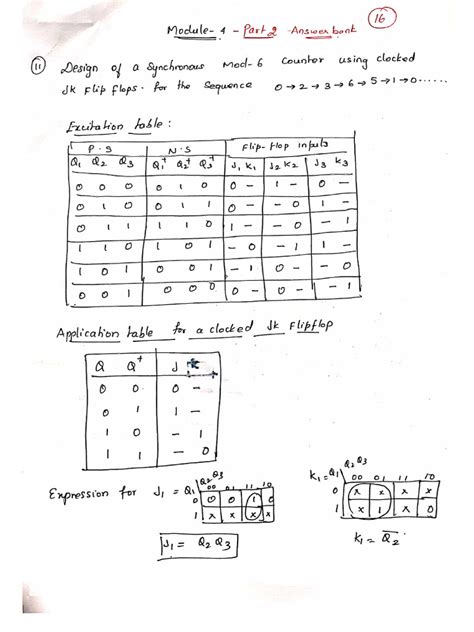 16
Module- 4 - Part 2 Answer bank
11 Design of a Synchronous Mod-6 Counter using clocked
JK Flip flops. for the Sequence 0→2→3→6→5→1→0......
Excitation table:
P.S N.S Flip-flop inputs
Q1 Q2 Q3 Q1+ Q2+ Q3+ J1 K1 J2 K2 J3 K3
0 0 0 0 1 0 0 - 1 - 0 -
0 1 0 0 1 1 0 - - 0 1 -
0 1 1 1 1 0 1 - - 0 - 1
1 1 0 1 0 1 - 0 - 1 1 -
1 0 1 0 0 1 - 1 0 - - 0
0 0 1 0 0 0 0 - 0 - - 1
Application table for a clocked JK Flipflop
Q Q+ J K
0 0 0 -
0 1 1 -
1 0 - 1
1 1 - 0
Expression for J1 = Q1 Q2 Q3
00 01 11 10
0 0 0 1 0
1 x x x x
J1 = Q2 Q3
K1 = Q1 Q2 Q3
00 01 11 10
0 x x x x
1 x 1 x 0
K1 = Q̅2